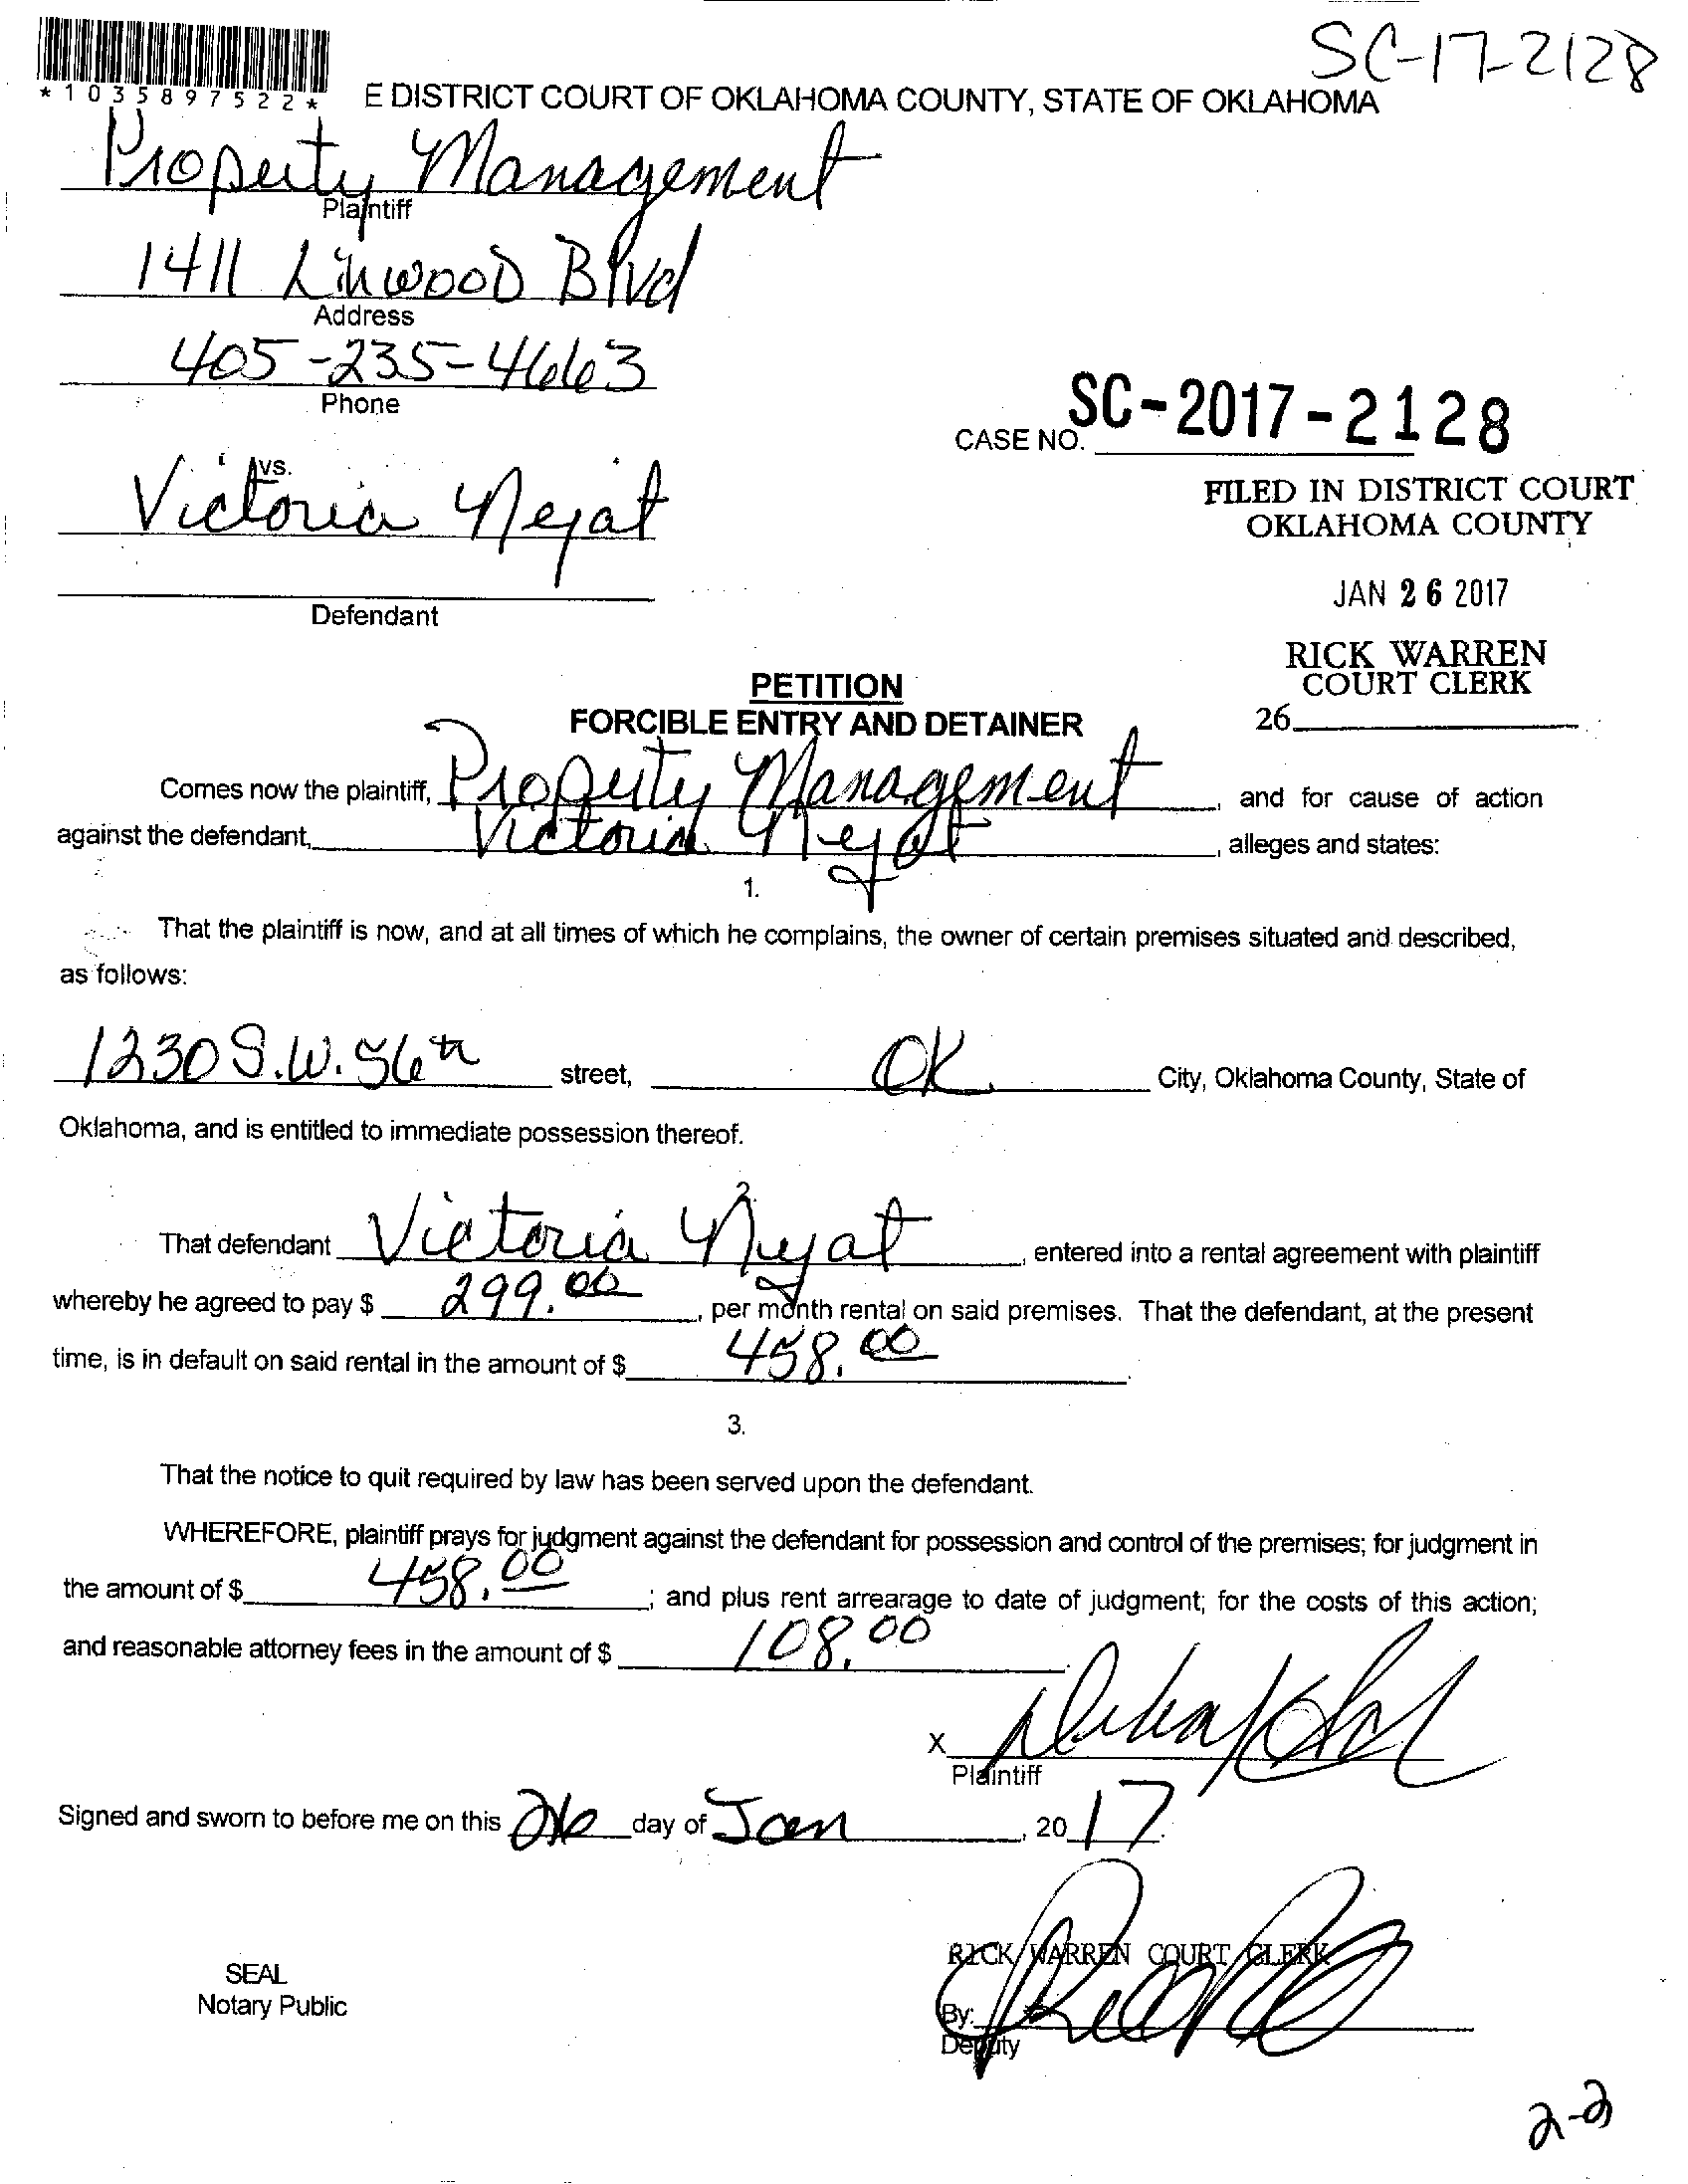 SC-17-2128
*1035897522*
E DISTRICT COURT OF OKLAHOMA COUNTY, STATE OF OKLAHOMA
Property Management
Plaintiff
1411 Linwood Blvd
Address
405-235-4663
Phone
CASE NO. SC-2017-2128
vs.
Victoria Nejat
FILED IN DISTRICT COURT
OKLAHOMA COUNTY
JAN 26 2017
Defendant
RICK WARREN
COURT CLERK
26
PETITION
FORCIBLE ENTRY AND DETAINER
Comes now the plaintiff, Property Management, and for cause of action
against the defendant, Victoria Nejat, alleges and states:
1.
That the plaintiff is now, and at all times of which he complains, the owner of certain premises situated and described,
as follows:
1230 S.W. 56th street, OK City, Oklahoma County, State of
Oklahoma, and is entitled to immediate possession thereof.
2.
That defendant Victoria Nejat, entered into a rental agreement with plaintiff
whereby he agreed to pay $ 299.00, per month rental on said premises. That the defendant, at the present
time, is in default on said rental in the amount of $ 458.00.
3.
That the notice to quit required by law has been served upon the defendant.
WHEREFORE, plaintiff prays for judgment against the defendant for possession and control of the premises; for judgment in
the amount of $ 458.00; and plus rent arrearage to date of judgment; for the costs of this action;
and reasonable attorney fees in the amount of $ 108.00
X
Plaintiff
Signed and sworn to before me on this 26 day of Jan, 20 17.
RICK WARREN COURT CLERK
SEAL
Notary Public
By:
Deputy
2-2